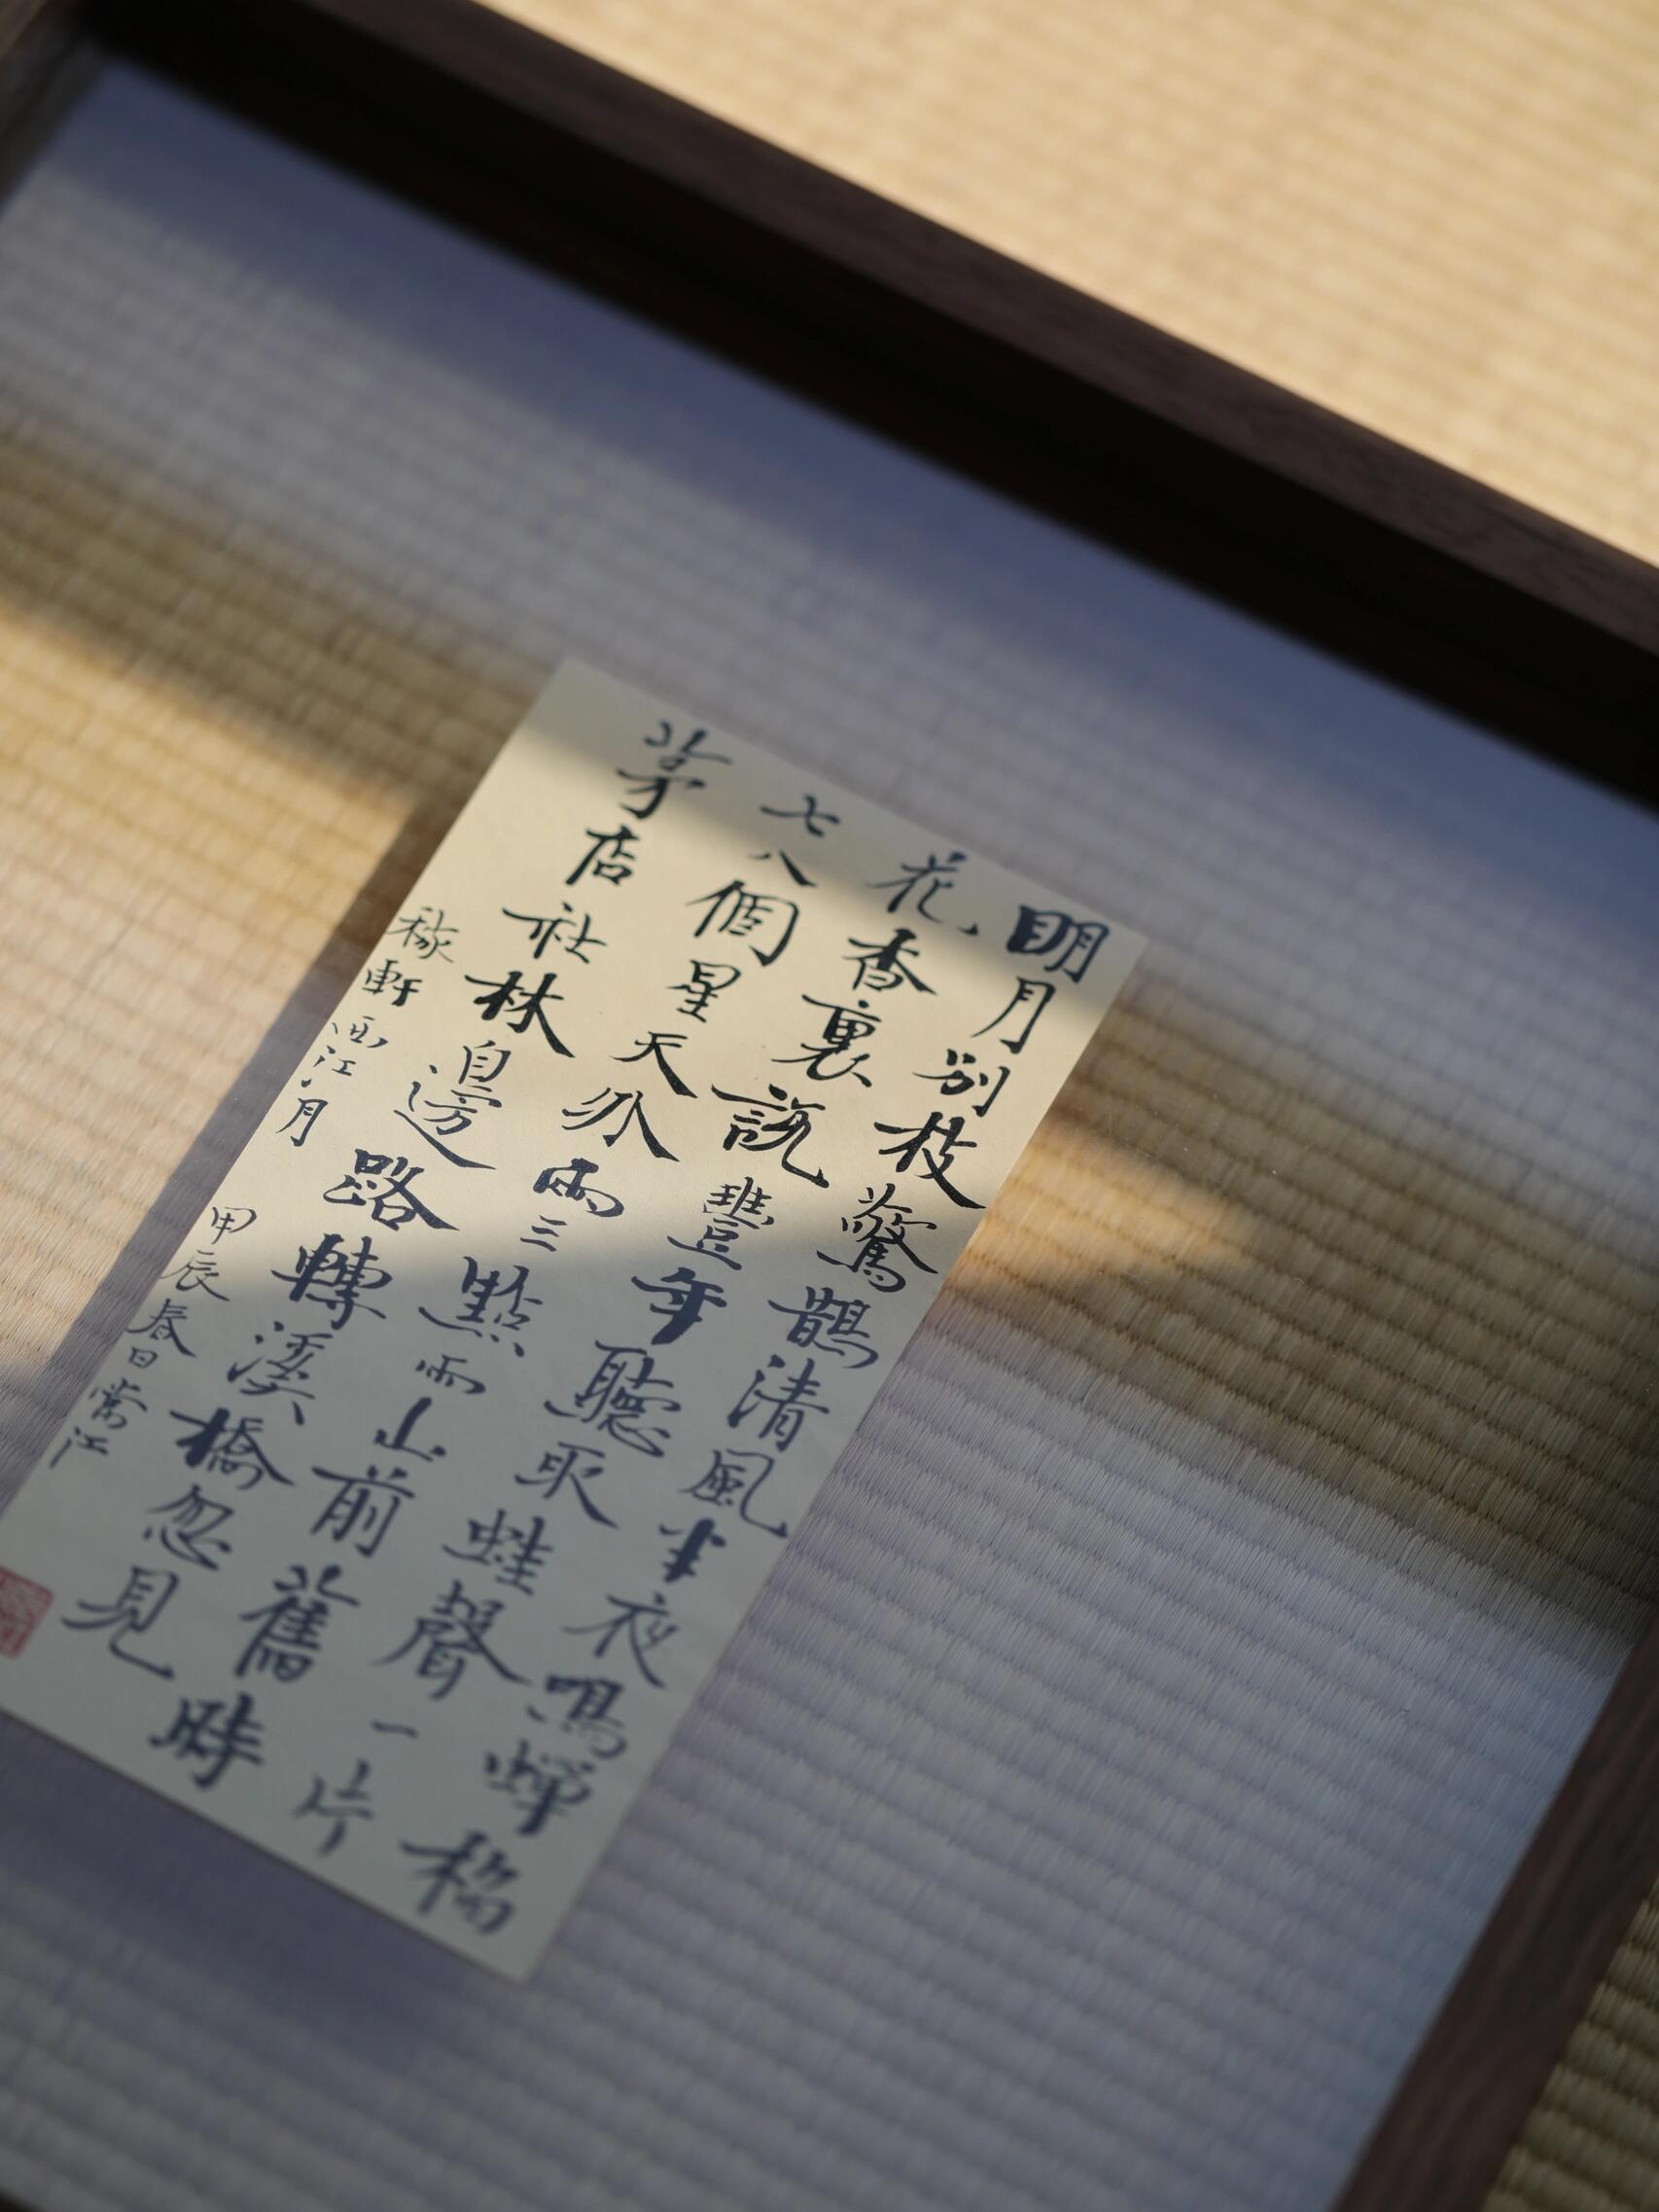 明月別枝驚鵲清風半夜鳴蟬稻
花香裏説豐年聽取蛙聲一片
七八個星天外兩三點雨山前舊時
茅店社林邊路轉溪橋忽見
稼軒西江月 甲辰春日常江